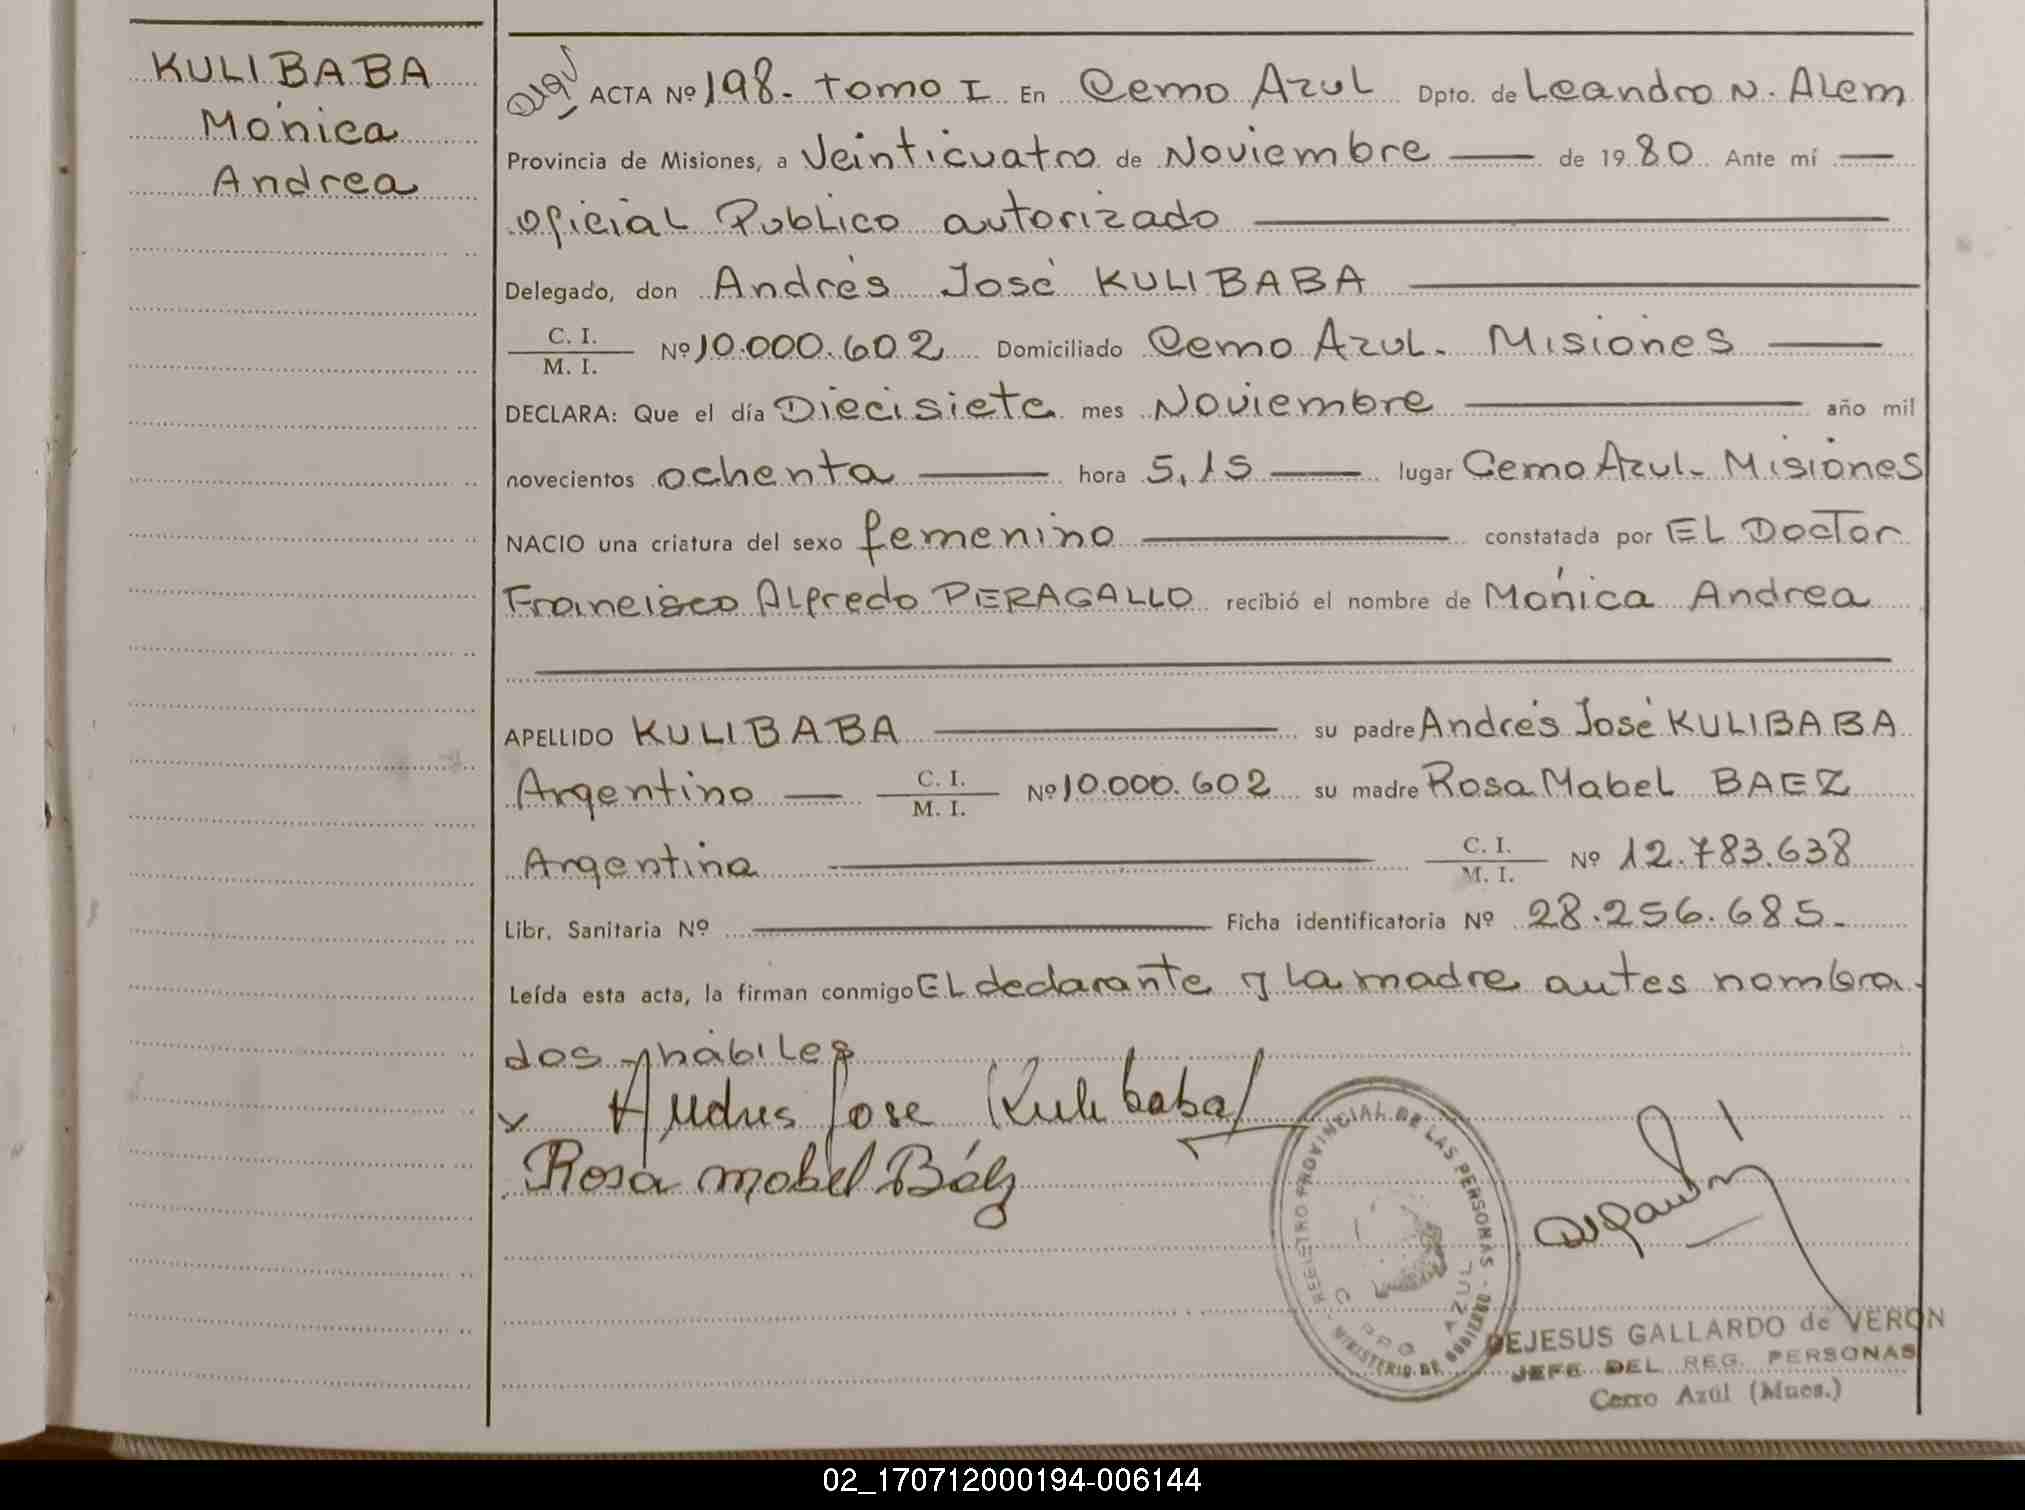 KULIBABA
Mónica
Andrea
ACTA Nº 198.- Tomo I En Cerro Azul Dpto. de Leandro N. Alem
Provincia de Misiones, a Veinticuatro de Noviembre — de 1980 Ante mí —
Oficial Publico autorizado —
Delegado, don Andrés José KULIBABA —
C. I.
M. I. Nº 10.000.602 Domiciliado Cerro Azul. Misiones —
DECLARA: Que el día Diecisiete mes Noviembre — año mil
novecientos ochenta — hora 5,15 — lugar Cerro Azul- Misiones
NACIO una criatura del sexo femenino — constatada por EL Doctor
Francisco Alfredo PERAGALLO recibió el nombre de Mónica Andrea
APELLIDO KULIBABA — su padre Andrés José KULIBABA
Argentino — C. I. M. I. Nº 10.000.602 su madre Rosa Mabel BAEZ
Argentina — C. I. M. I. Nº 12.783.638
Libr. Sanitaria Nº — Ficha identificatoria Nº 28.256.685.-
Leída esta acta, la firman conmigo EL declarante y La madre antes nombra-
dos - hábiles
Andres Jose Kulibaba
Rosa mabel Báez
REGISTRO PROVINCIAL DE LAS PERSONAS - MINISTERIO DE GOBIERNO
CERRO AZUL
DEJESUS GALLARDO de VERON
JEFE DEL REG. PERSONAS
Cerro Azúl (Mnes.)
02_170712000194-006144